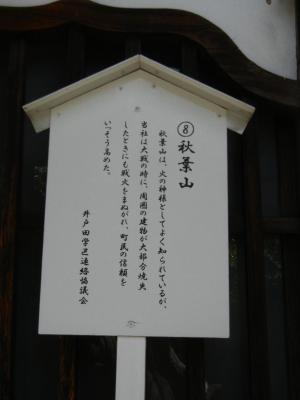 ⑧秋葉山
秋葉山は、火の神様としてよく知られているが、
当社は大戦の時に、周囲の建物が大部分焼失
したときにも戦火をまぬがれ、町民の信頼を
いっそう高めた。
井戸田学区連絡協議会